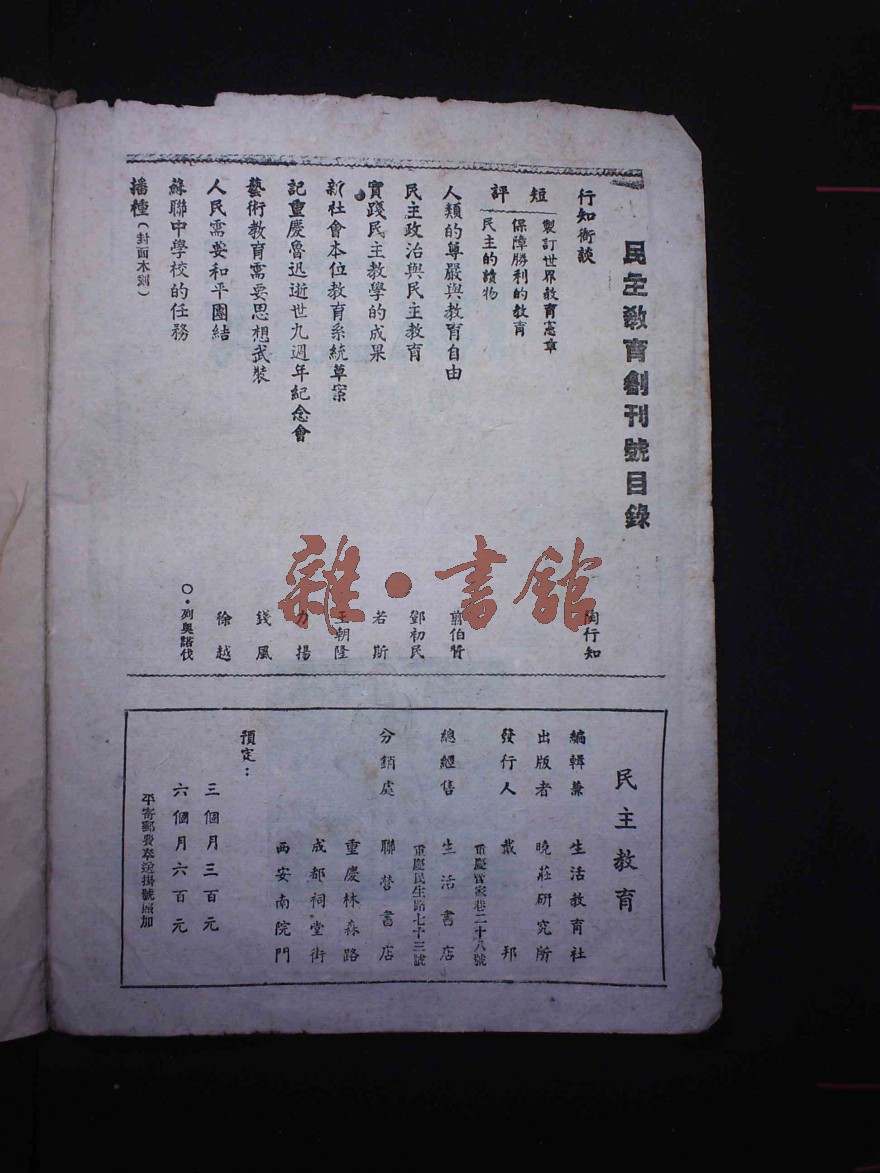 民主教育創刊號目錄
行知衖談
陶行知
短評
製訂世界教育憲章
保障勝利的教育
民主的讀物
人類的尊嚴與教育自由
翦伯贊
民主政治與民主教育
鄧初民
實踐民主教學的成果
若斯
新社會本位教育系統草案
王朝隆
記重慶魯迅逝世九週年紀念會
力揚
藝術教育需要思想武裝
錢風
人民需要和平團結
徐越
蘇聯中學校的任務
○·列奥諾伐
播種(封面木刻)
雜·書館
民主教育
編輯兼 生活教育社
出版者 曉莊研究所
發行人 戴邦
重慶管家巷二十八號
總經售 生活書店
重慶民生路七十三號
分銷處 聯營書店
重慶林森路
成都祠堂街
西安南院門
預定:
三個月三百元
六個月六百元
平寄郵費奉送掛號照加